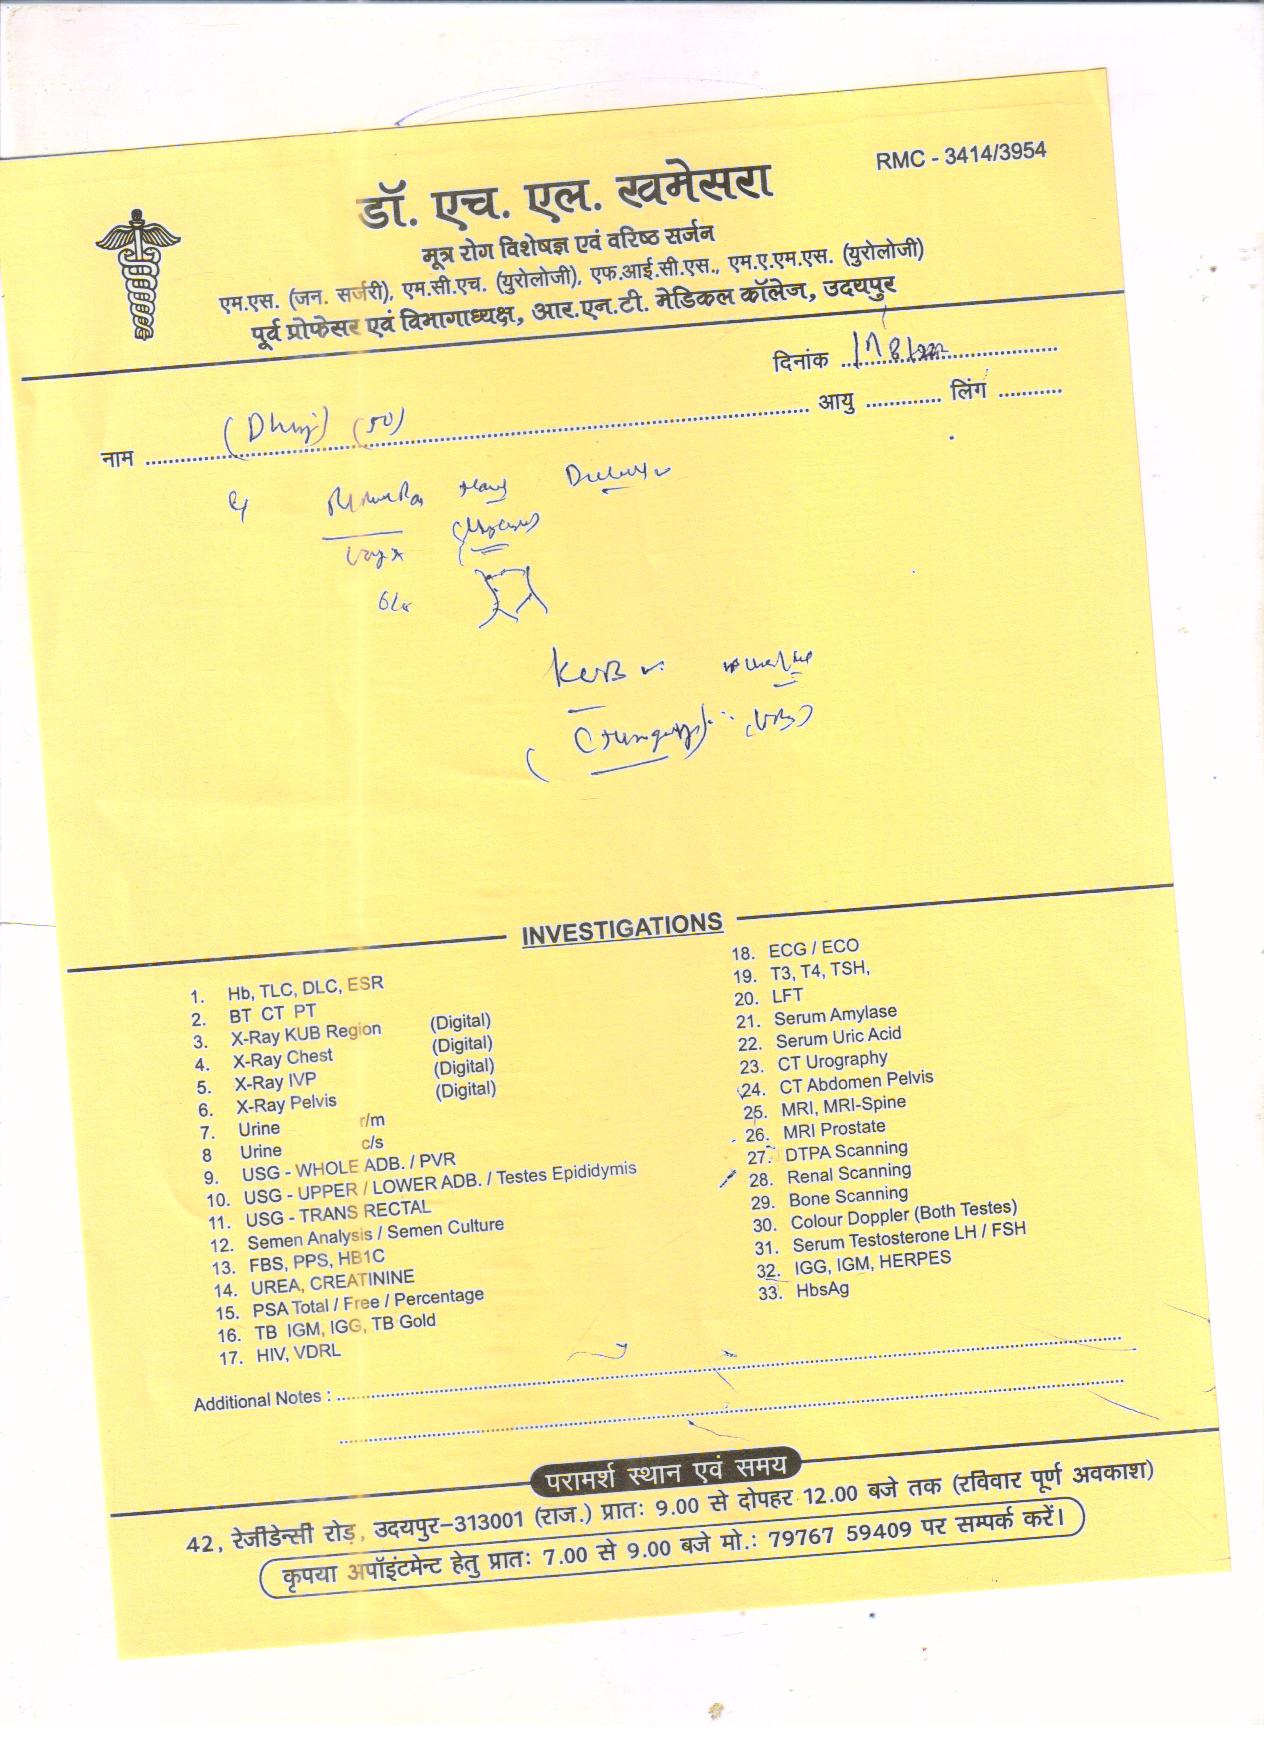 RMC - 3414/3954
डॉ. एच. एल. खमेसरा
मूत्र रोग विशेषज्ञ एवं वरिष्ठ सर्जन
एम.एस. (जन. सर्जरी), एम.सी.एच. (युरोलोजी), एफ.आई.सी.एस., एम.ए.एम.एस. (युरोलोजी)
पूर्व प्रोफेसर एवं विभागाध्यक्ष, आर.एन.टी. मेडिकल कॉलेज, उदयपुर
दिनांक
नाम (50) आयु लिंग
KUB
INVESTIGATIONS
1. Hb, TLC, DLC, ESR
2. BT CT PT
3. X-Ray KUB Region (Digital)
4. X-Ray Chest (Digital)
5. X-Ray IVP (Digital)
6. X-Ray Pelvis (Digital)
7. Urine r/m
8 Urine c/s
9. USG - WHOLE ADB. / PVR
10. USG - UPPER / LOWER ADB. / Testes Epididymis
11. USG - TRANS RECTAL
12. Semen Analysis / Semen Culture
13. FBS, PPS, HB1C
14. UREA, CREATININE
15. PSA Total / Free / Percentage
16. TB IGM, IGG, TB Gold
17. HIV, VDRL
18. ECG / ECO
19. T3, T4, TSH,
20. LFT
21. Serum Amylase
22. Serum Uric Acid
23. CT Urography
24. CT Abdomen Pelvis
25. MRI, MRI-Spine
26. MRI Prostate
27. DTPA Scanning
28. Renal Scanning
29. Bone Scanning
30. Colour Doppler (Both Testes)
31. Serum Testosterone LH / FSH
32. IGG, IGM, HERPES
33. HbsAg
Additional Notes :
परामर्श स्थान एवं समय
42, रेजीडेन्सी रोड़, उदयपुर-313001 (राज.) प्रातः 9.00 से दोपहर 12.00 बजे तक (रविवार पूर्ण अवकाश)
कृपया अपॉइंटमेन्ट हेतु प्रातः 7.00 से 9.00 बजे मो.: 79767 59409 पर सम्पर्क करें।